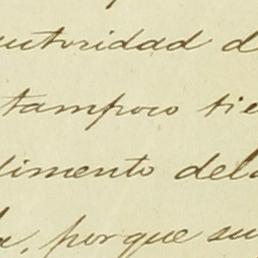 autoridad d
tampoco tie
dimento del
, porque su